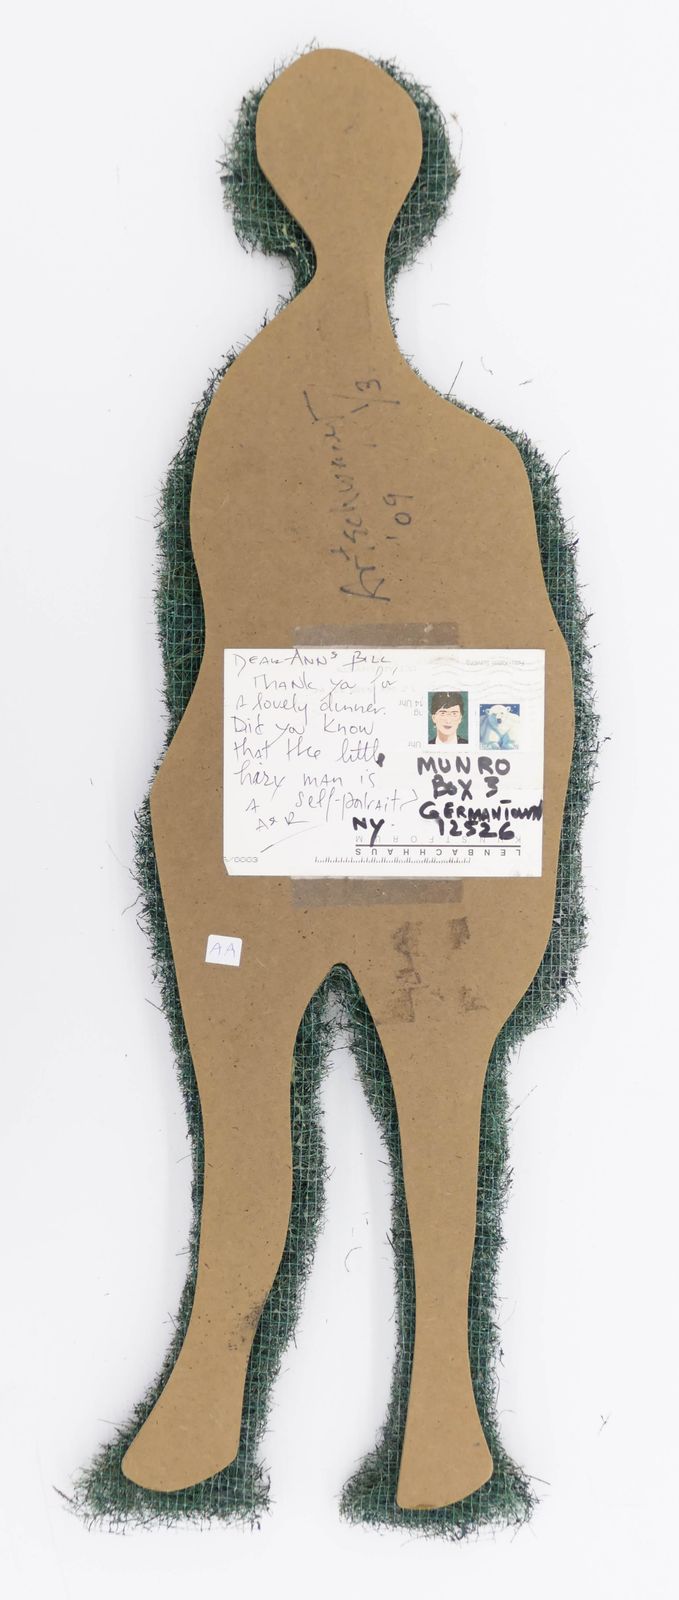 Artschwager 1/3
'09
DEAR ANN & BILL
Thank you for
A lovely dinner.
Did you know
that the little
hairy man is
A self-portrait?
A & R
MUNRO
BOX 3
GERMANTOWN
NY. 12526
LENBACHHAUS
KUNSTFORUM
14 Uhr
Uhr
AA